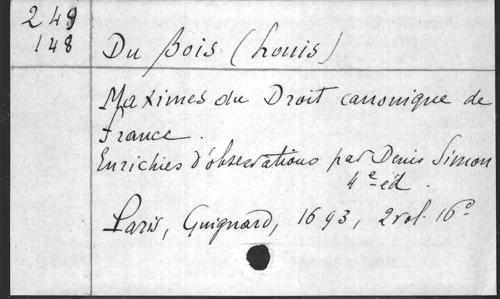 249
148
Du Bois (Louis)
Maximes du Droit canonique de
France.
Enrichies d'observations par Denis Simon
4e éd.
Paris, Guignard, 1693, 2 vol. 16°